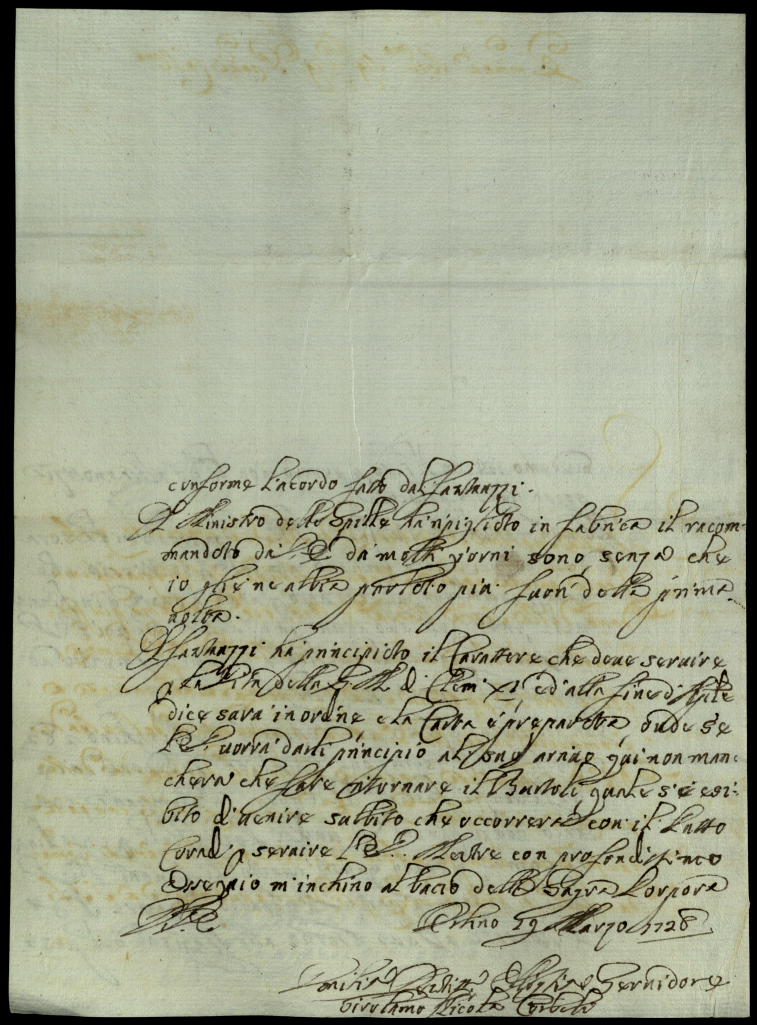 conforme l'acordo fatto dal Fantauzzi.
Il Ministro delle Spille ha ripigliato in fabrica il racom=
mandato da V. E. da molti giorni sono, senza che
io gliene abbia parlato più fuori della prima
volta.
Il Fantauzzi ha principiato il Carattere che deve servire
la Vita della di Clem: XI, ed alla fine d'Aprile
dice sarà in ordine e la Carta è preparata onde se
V. E. vorrà darli principio al suo arrivo qui non man=
cherà che fare ritornare il Bartoli, quale s'è esi=
bito di venire subbito che occorrerà con il Putto
Corradi servire V. E. Mentre con profondissimo
Ossequio m'inchino al bacio della Sagra Porpora
Urbino 19 Marzo 1728
Servidore
Girolamo Nicola